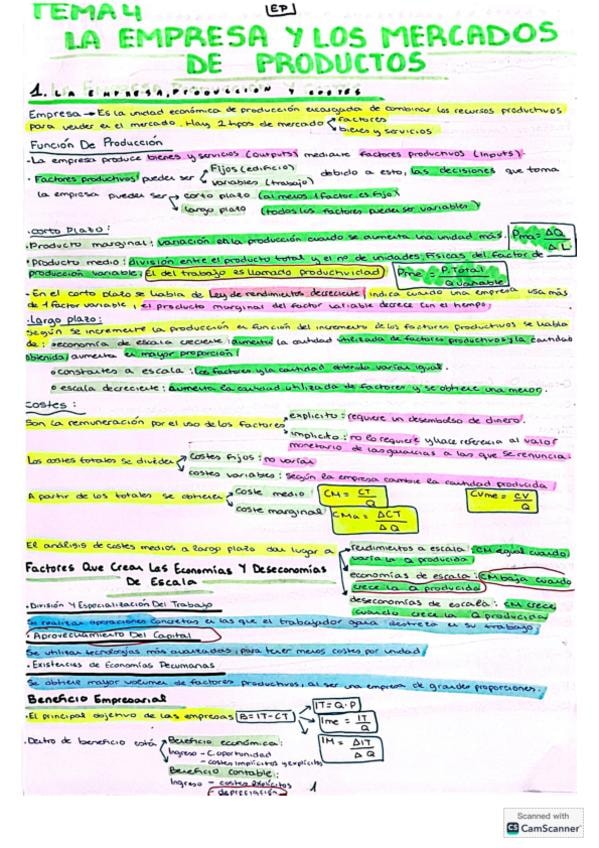 TEMA 4
EP
LA EMPRESA Y LOS MERCADOS
DE PRODUCTOS
1. LA EMPRESA, PRODUCCIÓN Y COSTES
Empresa → Es la unidad económica de producción encargada de combinar los recursos productivos
para vender en el mercado. Hay 2 tipos de mercado
factores
bienes y servicios
Función De Producción
· La empresa produce bienes y servicios (outputs) mediante factores productivos (inputs).
· Factores productivos pueden ser
Fijos (edificio)
variables (trabajo)
debido a esto, las decisiones que toma
la empresa pueden ser
corto plazo (al menos 1 factor es fijo)
largo plazo (todos los factores pueden ser variables)
· Corto Plazo:
· Producto marginal: variación en la producción cuando se aumenta una unidad más.
Pma = ΔQ / ΔL
· Producto medio: división entre el producto total y el nº de unidades físicas del factor de
producción variable. El del trabajo es llamado productividad
Pme = P.Total / Q variable
· En el corto plazo se habla de Ley de rendimientos decreciente, indica cuando una empresa usa más
de 1 factor variable, el producto marginal del factor variable decrece con el tiempo.
· Largo plazo:
Según se incremente la producción en función del incremento de los factores productivos se habla
de: economía de escala creciente: aumenta la cantidad utilizada de factores productivos y la cantidad
obtenida aumenta en mayor proporción
constantes a escala: los factores y la cantidad obtenida varían igual.
escala decreciente: aumenta la cantidad utilizada de factores y se obtiene una menor.
Costes:
Son la remuneración por el uso de los factores
explícito: requiere un desembolso de dinero.
implícito: no lo requiere y hace referencia al valor
monetario de las ganancias a las que se renuncia.
Los costes totales se divide
costes fijos: no varían
costes variables: según la empresa cambie la cantidad producida
A partir de los totales se obtiene
coste medio: CM = CT / Q
CVme = CV / Q
coste marginal: CMa = ΔCT / ΔQ
El análisis de costes medios a largo plazo dan lugar a
rendimientos a escala: CM igual cuando
varía la Q producida
Factores Que Crean Las Economías Y Deseconomías
De Escala
economías de escala: CM baja cuando
crece la Q producida
deseconomías de escala: CM crece
cuando crece la Q producida
· División Y Especialización Del Trabajo
realizar operaciones concretas en las que el trabajador gana destreza en su trabajo.
· Aprovechamiento Del Capital
Se utilizan tecnologías más avanzadas, para tener menos costes por unidad
· Existencias de Economías Pecuniarias
Se obtiene mayor volumen de factores productivos, al ser una empresa de grandes proporciones.
Beneficio Empresarial
· El principal objetivo de las empresas B = IT - CT
IT = Q · P
Ime = IT / Q
IM = ΔIT / ΔQ
· Dentro de beneficio está
Beneficio económico:
Ingreso - C. oportunidad
- costes implícitos y explícitos
Beneficio contable:
Ingreso - costes explícitos
- depreciación
1
Scanned with
CS CamScanner